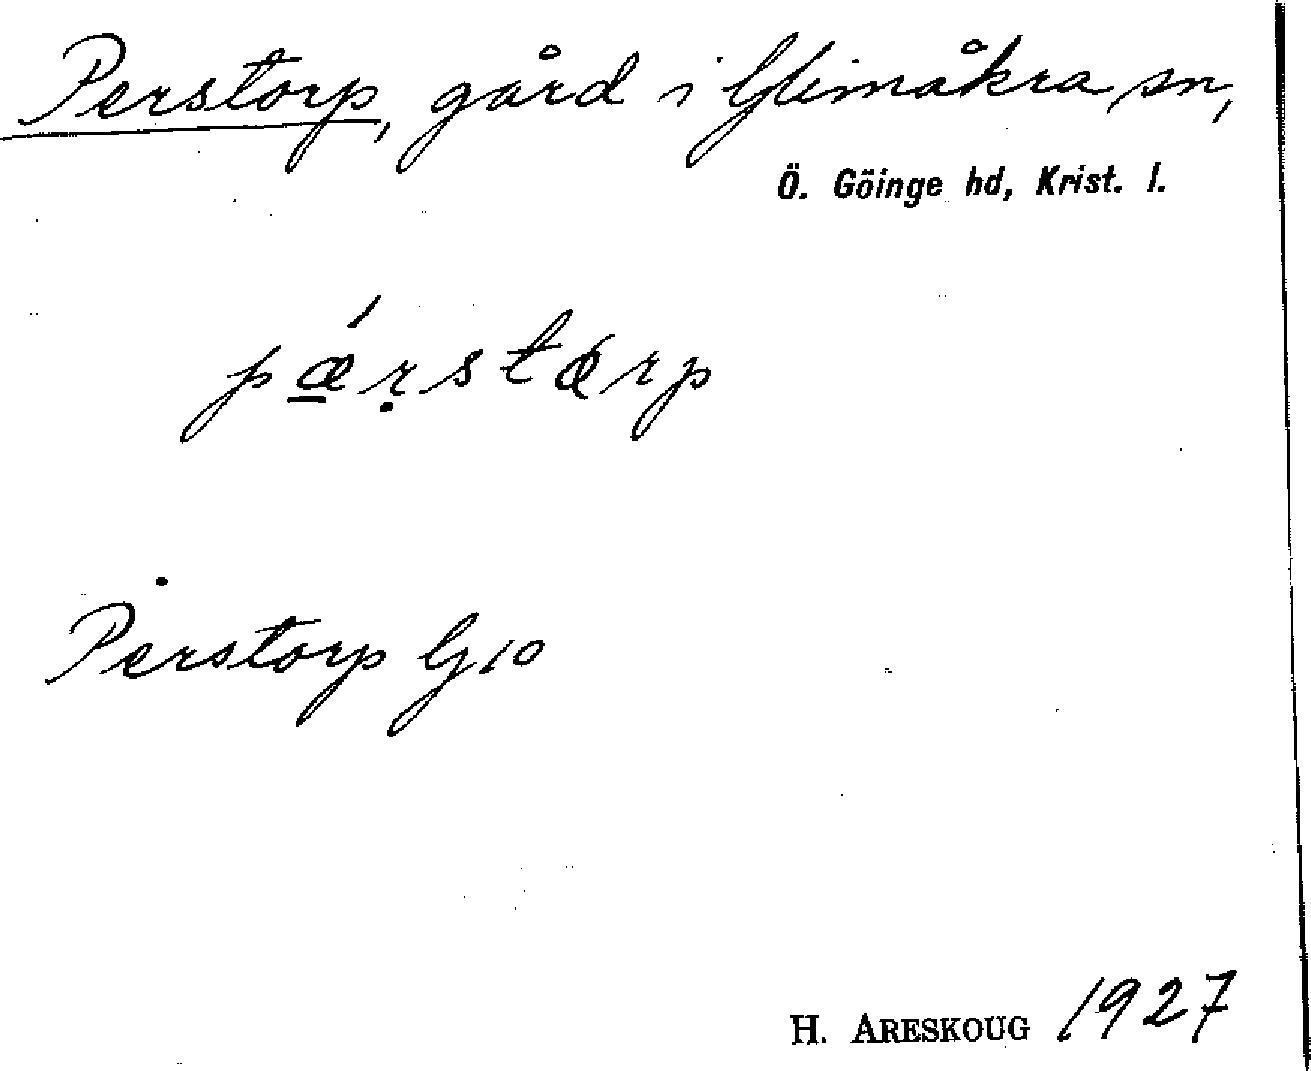 Perstorp, gård i Glimåkra sn,
Ö. Göinge hd, Krist. l.
pǽ̱ṛstørp
Perstorp G10
H. ARESKOUG 1927